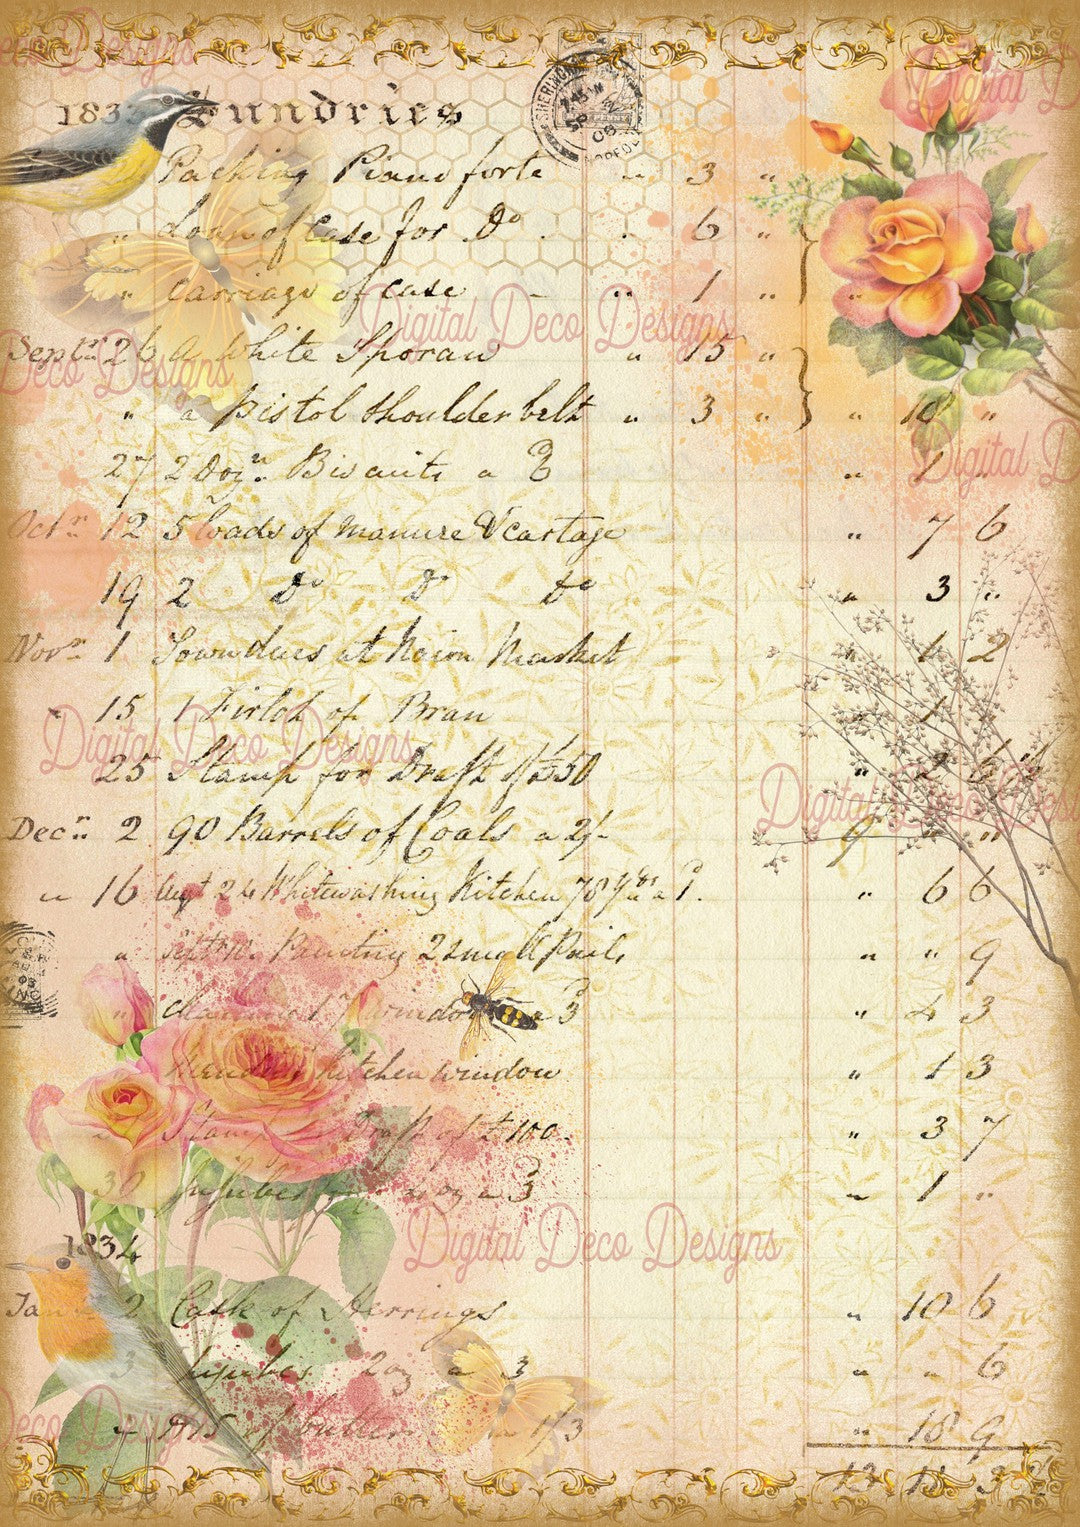 1833 Sundries
Packing Piano forte " 3 "
" Loan of Case for Do " 6 "
" Carriage of Case " 1 " "
Septr 26 a White Sporan " 15 "
" a pistol shoulder belt " 3 " " "
27 2 Dozn Biscuits a " 1 "
Octr 12 5 loads of manure & cartage " 7 6
19 2 Do Do Do " 3 "
Novr 1 at Nairn Market 2
15 1 Firlot of Bran
25 Stamp for Draft
Decr 2 90 Barrels of Coals a 2/-
" 16 24 Whitewashing Kitchen 78 a " 6 6
" Painting 2 small Pails " " 9
" window 3 " 4 3
Kitchen window " 1 3
Draft of £100. " 3 7
30 Jujubes 3 " 1 "
1834
Jan 2 Cask of Herrings " 10 6
3 Jujubes 2 oz a 3 " " 6
" of butter 1/3 " 18 9
Digital Deco Designs
Digital Deco Designs
Digital Deco Designs
Digital Deco Designs
Deco Designs
Deco Designs